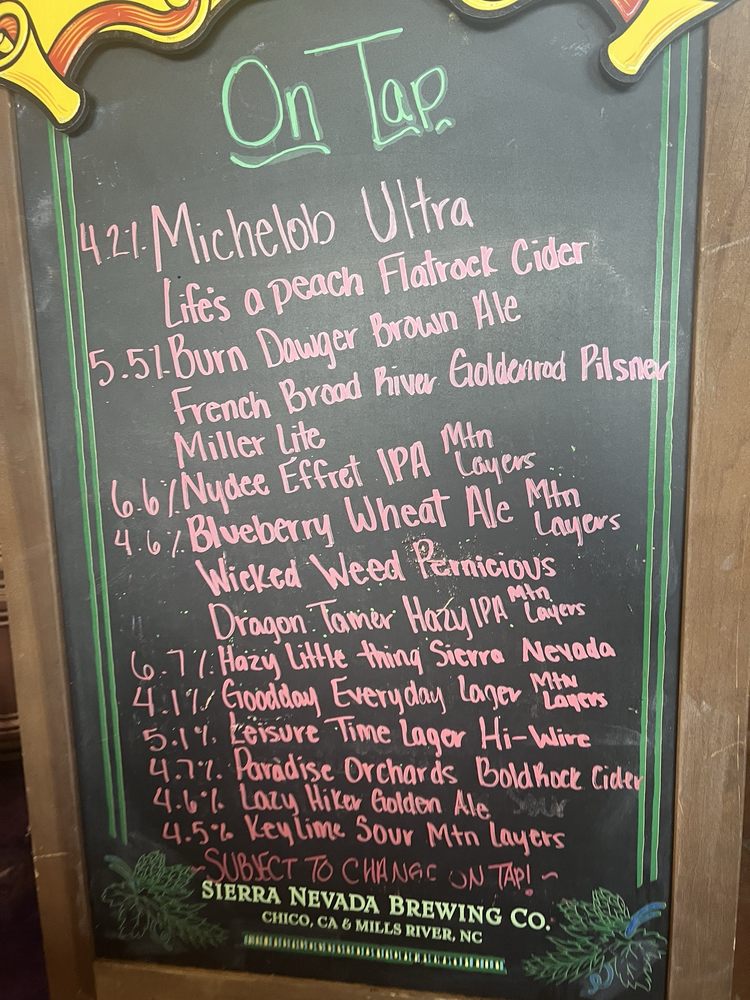 On Tap
4.2% Michelob Ultra
Life's a peach Flatrock Cider
5.5% Burn Dawger Brown Ale
French Broad River Goldenrod Pilsner
Miller Lite
6.6% Nydee Effret IPA Mtn Layers
4.6% Blueberry Wheat Ale Mtn Layers
Wicked Weed Pernicious
Dragon Tamer Hazy IPA Mtn Layers
6.7% Hazy Little thing Sierra Nevada
4.1% Goodday Everyday Lager Mtn Layers
5.1% Leisure Time Lager Hi-Wire
4.7% Paradise Orchards BoldRock Cider
4.6% Lazy Hiker Golden Ale
4.5% Keylime Sour Mtn Layers
~SUBJECT TO CHANGE ON TAP!~
SIERRA NEVADA BREWING CO.
CHICO, CA & MILLS RIVER, NC